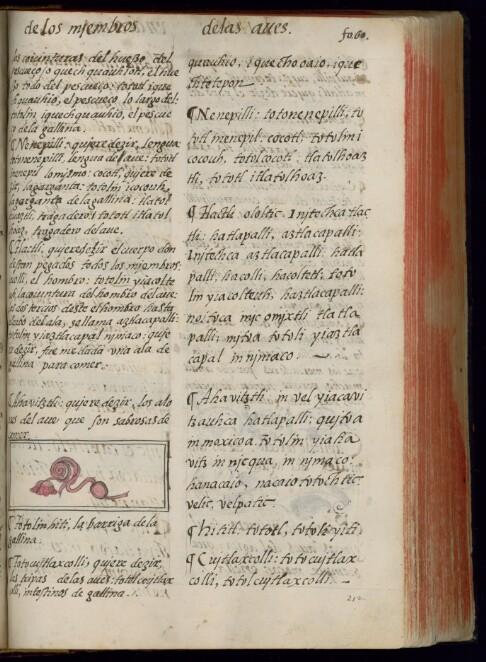 de los miembros
de las aues.
fo. 60.
las coiunturas del hueßo, del
pescueço o quechquauhiotl, el hue
ßo todo del pescueço: tototl iquech
quauhio, el pescueço, lo largo del:
totolin iquechquauhio, el pescue
ço dela gallina.
¶Nenepilli: quiere dezir, lengua
totonenepilli, lengua de laue: tototl
inenepil lo mjsmo: cocotl, quiere de
zir, la garganta: totolin icocouh,
la garganta de la gallina: tlatol
huaztli, tragadero: tototl itlatol
hoaz, tragadero del aue.
¶Tlactli: quiere dezir el cuerpo don
de estan pegados todos los miembros:
acolli, el hombro: totolin yiacolte
uh, la coiuntura del hombro del aue:
desde el hombro hasta
el cabo del ala, se llama aztlacapalli:
totolin yiaztlacapal njmaco: quie
re dezir, fue me dada vna ala de
gallina para comer.
¶Ahavitztli: quiere dezir, los alo
nes del aue que son sabrosas de
comer.
¶Totolin hiti, la barriga de la
gallina.
¶Totocuytlaxcolli, quiere dezir,
las tripas de las aues: tototl cujtlax
colli, intestinos de gallina.
quauhio, iquechooaio, ique
chtetepon.
¶Nenepilli: totonenepilli, to
totl inenepil: cocotl, totolin i
cocouh, totolcocotl: tlatolhoaz
tli, tototl itlatolhoaz.
¶Tlactli: ololtic. Injtechca tlac
tli: hatlapalli, aztlacapalli:
Injtechca aztlacapalli: hatla
palli: hacolli, hacoltetl, toto
lin yiacolteuh, haztlacapalli:
no itoca mjc omjxtli tlatla
palli; mjtoa totoli yiaztla
capal in njmaco.
¶Ahavitztli, in vel yiacavi
tzauhca hatlapalli: qujtoa
in mexicoa. totolin yiaha
vitz in njcqua, in njmaco:
hanacaio, nacaio totohtic,
velic, velpatic.
¶Hititl: tototl, totoli yiti.
¶Cujtlaxcolli: totocujtlax
colli, totolcujtlaxcolli.
212